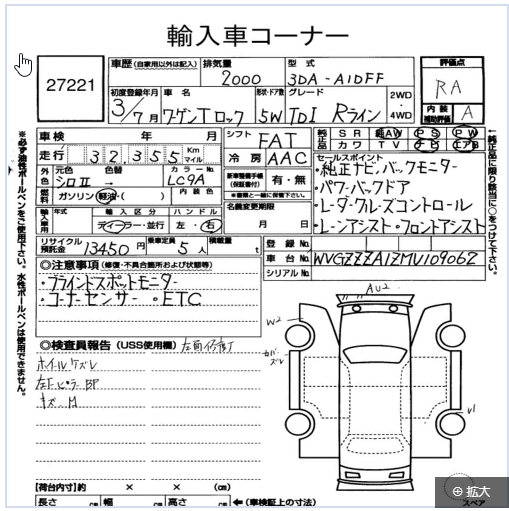 輸入車コーナー
27221
車歴 (自家用以外は記入) 排気量 2000 型式 3DA-A1DFF
初度登録年月 3/7月 車名 ワーゲンTロック 形状・ドア数 5W グレード TDI Rライン 2WD・4WD
評価点 RA
内装補助評価 A
車検 年 月
走行 32,355 Km マイル
外色 元色 シロⅡ 色替 → カラーNo. LC9A
燃料 ガソリン・軽油・( ) 内装色
輸入車用 年式 輸入区分 ディーラー・並行 ハンドル 左・右
リサイクル預託金 13450円 乗車定員 5人 積載量 t
シフト FAT
冷房 AAC
新車整備手帳(保証書付) 有・無
※書類と一緒に保管下さい。
名義変更期限 月 日
登録No.
車台No. WVGZZZA1ZMV109062
シリアルNo.
純正品 SR AW PS PW
カワ TV ナビ エアB
セールスポイント
・純正ナビ・バックモニター
・パワーバックドア
・レーダークルーズコントロール
・レーンアシスト・フロントアシスト
※必ず油性ボールペンをご使用下さい。水性ボールペンは使用できません。
←純正品に限り該当に○をつけて下さい。
◎注意事項 (修復・不具合箇所および状態等)
・ブラインドスポットモニター
・コーナーセンサー ・ETC
◎検査員報告 (USS使用欄)
ホイールケズレ
キズ H
AU2
W2
【荷台内寸】約 × × (cm)
長さ cm 幅 cm 高さ cm ←(車検証上の寸法)
スペア
拡大